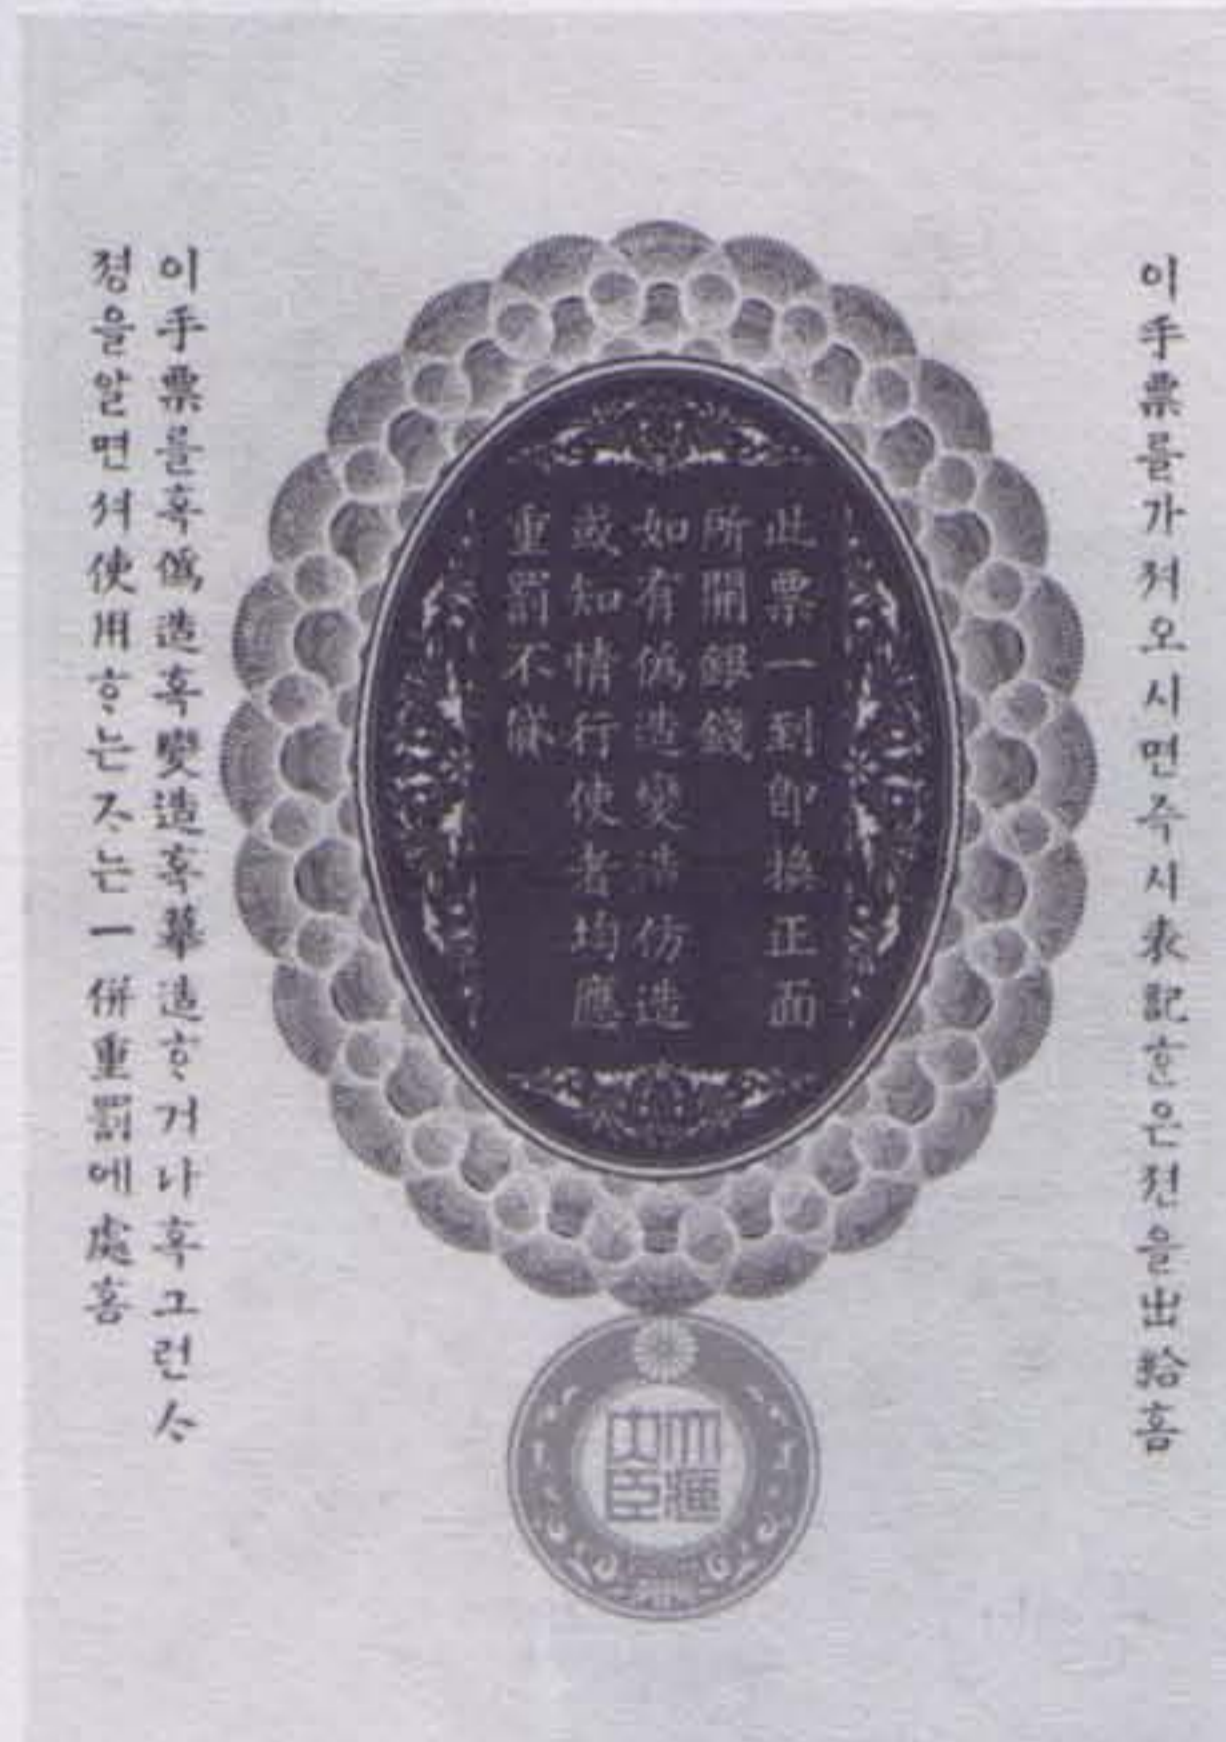 이手票를가져오시면즉시表記ᄒᆞᆫ은젼을出給홈
此票一到卽換正面
所開銀錢
如有僞造變造仿造
或知情行使者均應
重罰不貸
이手票를혹僞造혹變造혹摹造ᄒᆞ거나혹그런ᄉᆞ
졍을알면셔使用ᄒᆞ는ᄌᆞ는一併重罰에處홈
大藏
大臣